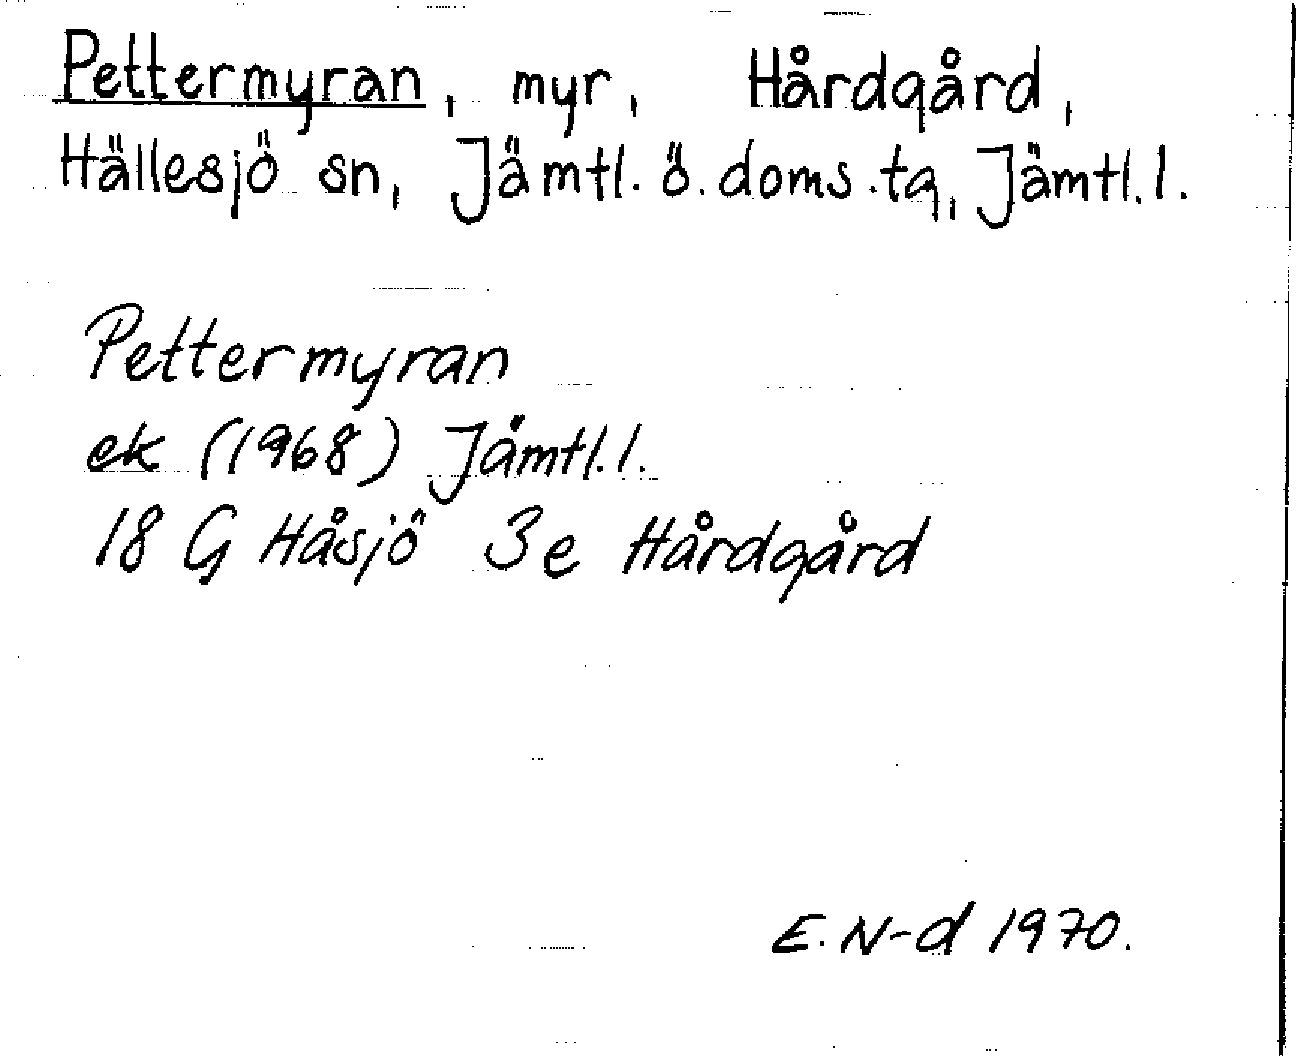 Pettermyran, myr, Hårdgård,
Hällesjö sn, Jämtl. ö. doms.tg, Jämtl. l.
Pettermyran
ek (1968) Jämtl. l.
18 G Håsjö 3e Hårdgård
E. N-d 1970.